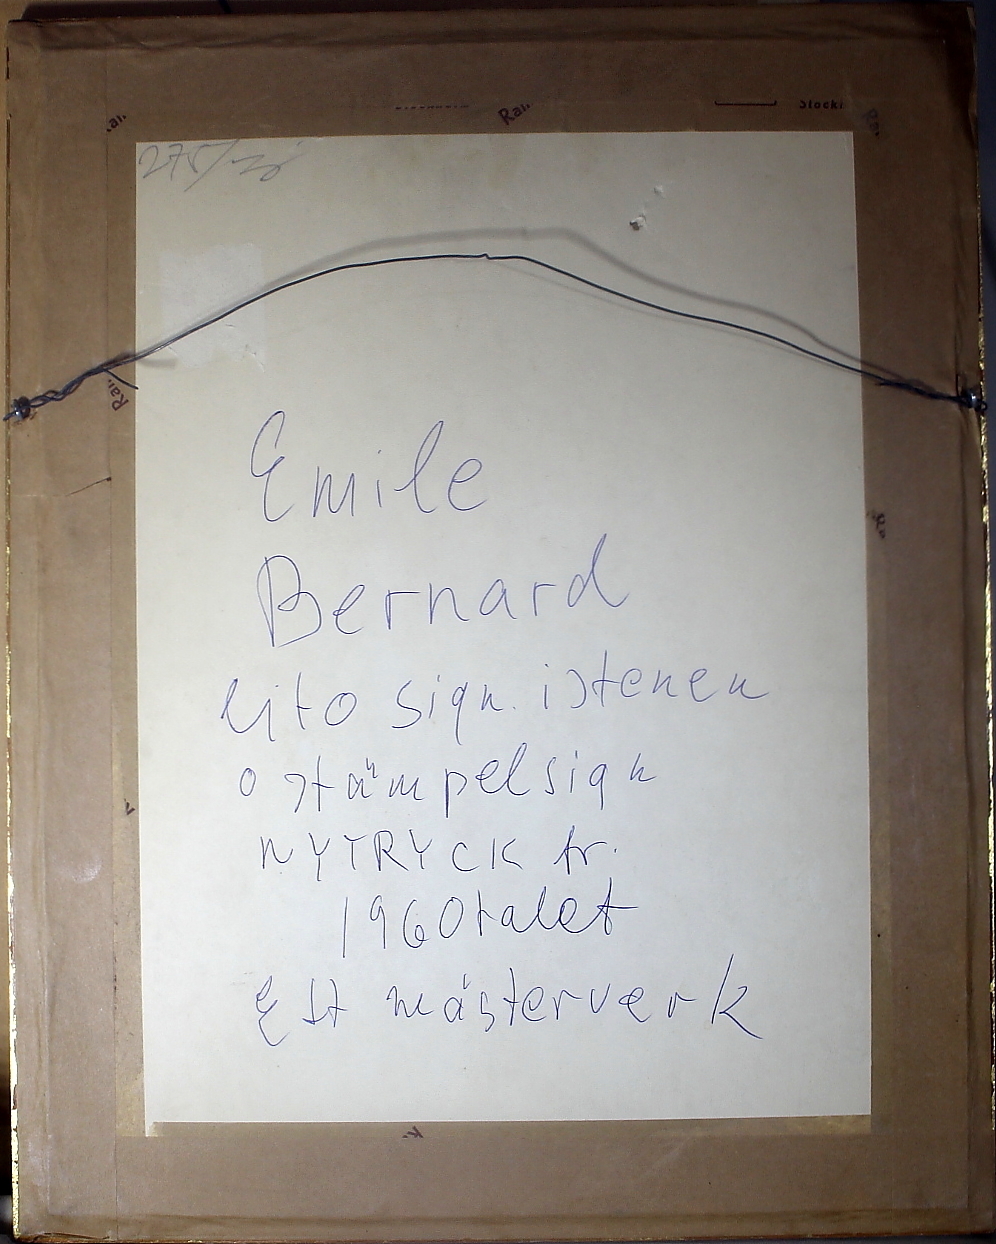 Ram
Stockh
275/
Emile
Bernard
Lito sign. i stenen
o stämpelsign
NYTRYCK fr.
1960talet
Ett mästerverk